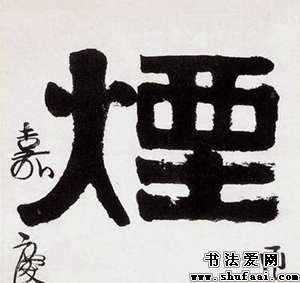 煙
嘉慶
书法爱网
www.shufaai.com